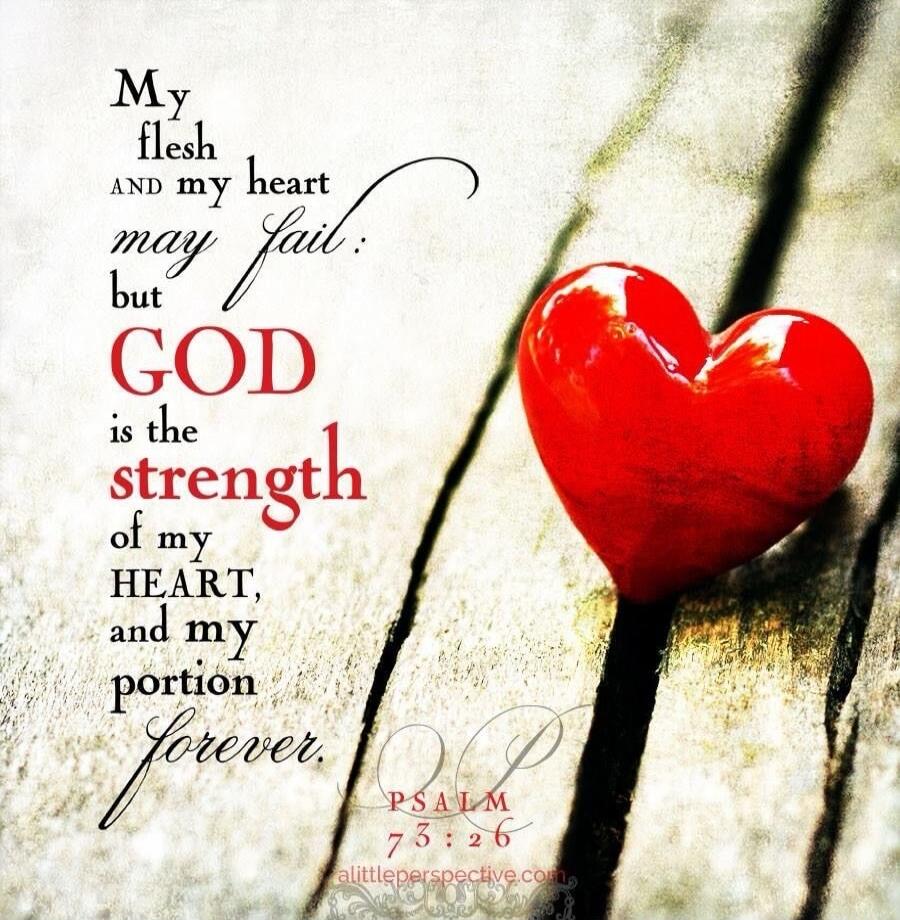 My
flesh
AND my heart
may fail :
but
GOD
is the
strength
of my
HEART,
and my
portion
forever.
P
PSALM
73:26
alittleperspective.com